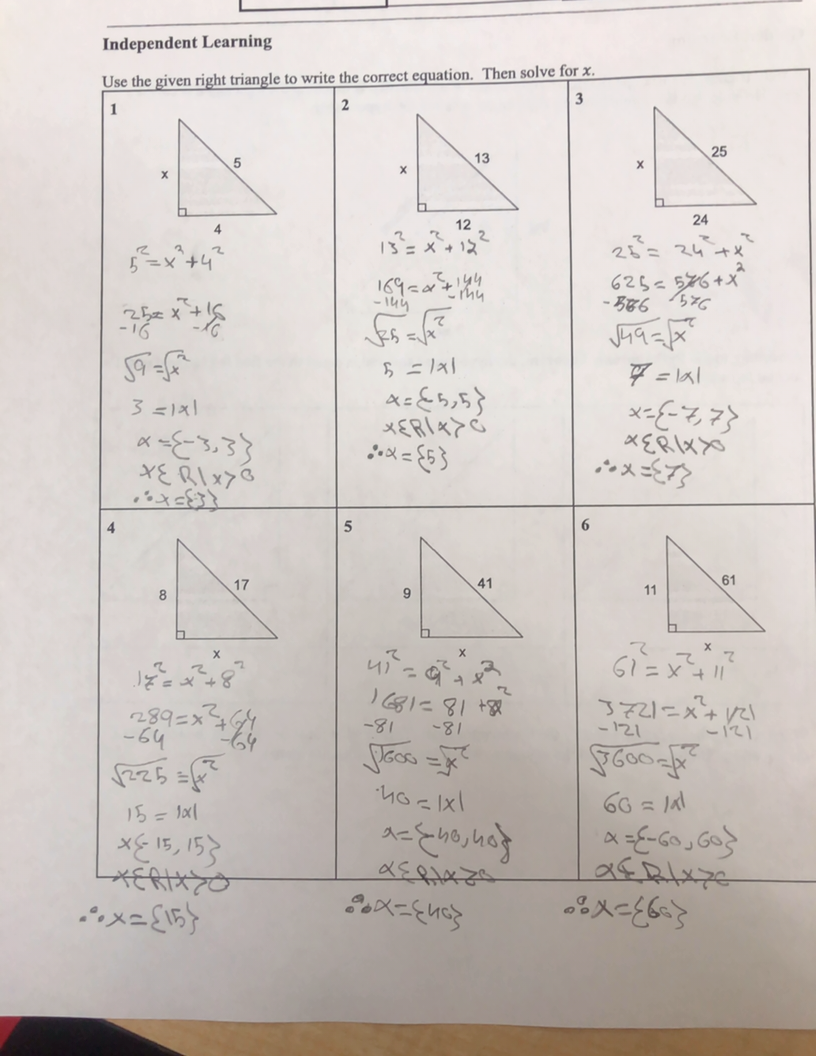 Independent Learning
Use the given right triangle to write the correct equation. Then solve for x.
1
x
5
4
5² = x² + 4²
25 = x² + 16
-16 -16
√9 = √x²
3 = |x|
x = {-3, 3}
x ∈ R | x > 0
∴ x = {3}
2
x
13
12
13² = x² + 12²
169 = x² + 144
-144 -144
√25 = √x²
5 = |x|
x = {-5, 5}
x ∈ R | x > 0
∴ x = {5}
3
x
25
24
25² = 24² + x²
625 = 576 + x²
-576 576
√49 = √x²
7 = |x|
x = {-7, 7}
x ∈ R | x > 0
∴ x = {7}
4
8
17
x
17² = x² + 8²
289 = x² + 64
-64 -64
√225 = √x²
15 = |x|
x {-15, 15}
x ∈ R | x > 0
∴ x = {15}
5
9
41
x
41² = 9² + x²
1681 = 81 + x²
-81 -81
√1600 = √x²
40 = |x|
x = {-40, 40}
x ∈ R | x > 0
∴ x = {40}
6
11
61
x
61² = x² + 11²
3721 = x² + 121
-121 -121
√3600 = √x²
60 = |x|
x = {-60, 60}
x ∈ R | x > 0
∴ x = {60}